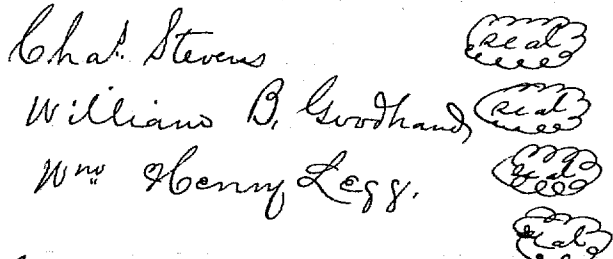 Chas. Stevens seal
William B. Goodhand, seal
Wm Henry Legg. seal
seal